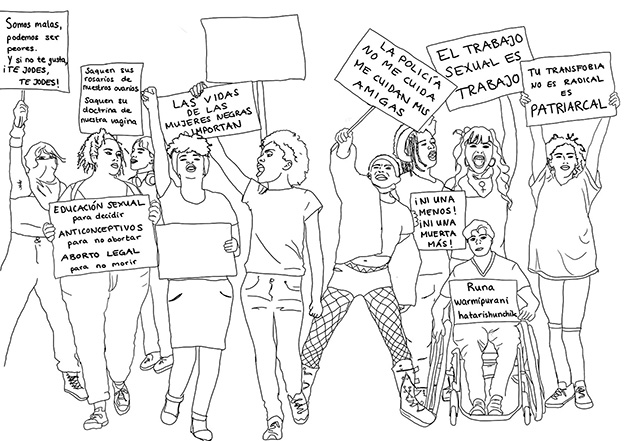 Somos malas,
podemos ser
peores.
Y si no te gusta,
¡TE JODES,
TE JODES!
Saquen sus
rosarios de
nuestros ovarios
Saquen su
doctrina de
nuestra vagina
LAS VIDAS
DE LAS
MUJERES NEGRAS
IMPORTAN
LA POLICÍA
NO ME CUIDA
ME CUIDAN MIS
AMIGAS
EL TRABAJO
SEXUAL ES
TRABAJO
TU TRANSFOBIA
NO ES RADICAL
ES
PATRIARCAL
EDUCACIÓN SEXUAL
para decidir
ANTICONCEPTIVOS
para no abortar
ABORTO LEGAL
para no morir
¡NI UNA
MENOS!
¡NI UNA
MUERTA
MÁS!
Runa
warmipurani
hatarishunchik